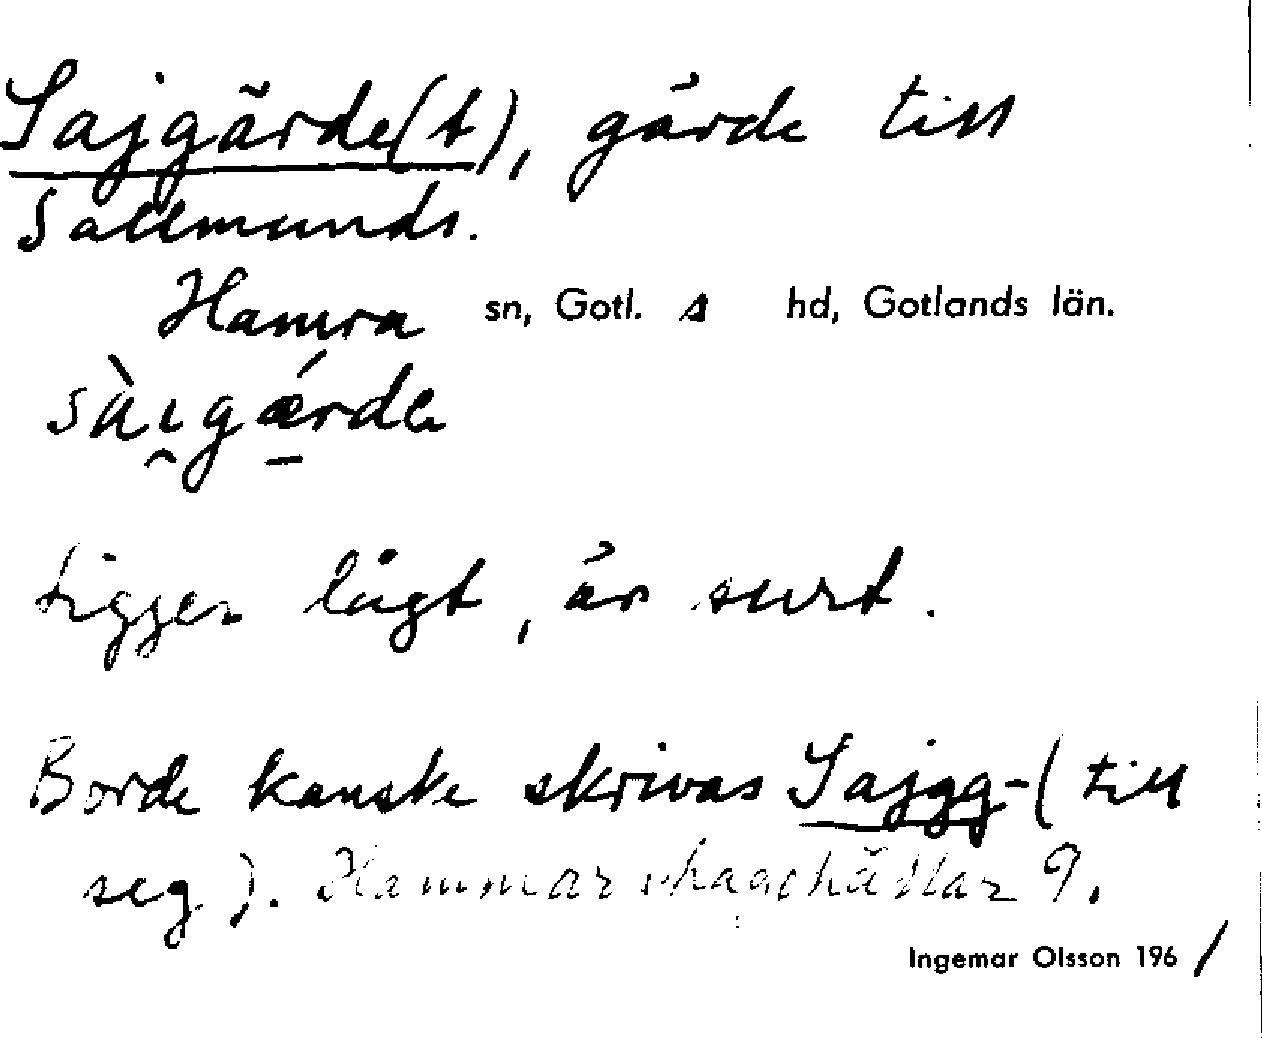 Sajgärde(t), gärde till
Sallmunds.
Hamra sn, Gotl. s hd, Gotlands län.
sàɩ̯gǽ̠rde
Ligger lågt, är surt.
Borde kanske skrivas Sajgg- (till
seg). Hammarshagahällar 9.
Ingemar Olsson 1961